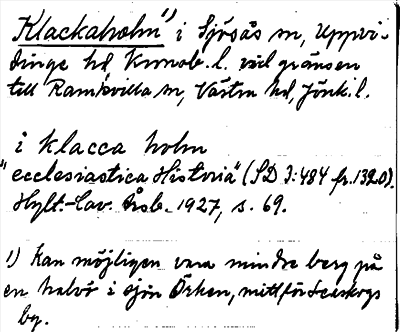 Klackaholm¹⁾ i Sjösås sn, Uppvi-
dinge hd, Kronob. l. vid gränsen
till Ramkvilla sn, Västra hd, Jönk. l.
i klacca holm
"ecclesiastica Historia" (SD 3:484 fr. 1320).
Hylt.-Cav. Årsb. 1927, s. 69.
1) Kan möjligen vara mindre berg på
en halvö i sjön Örken, mitt för
by.